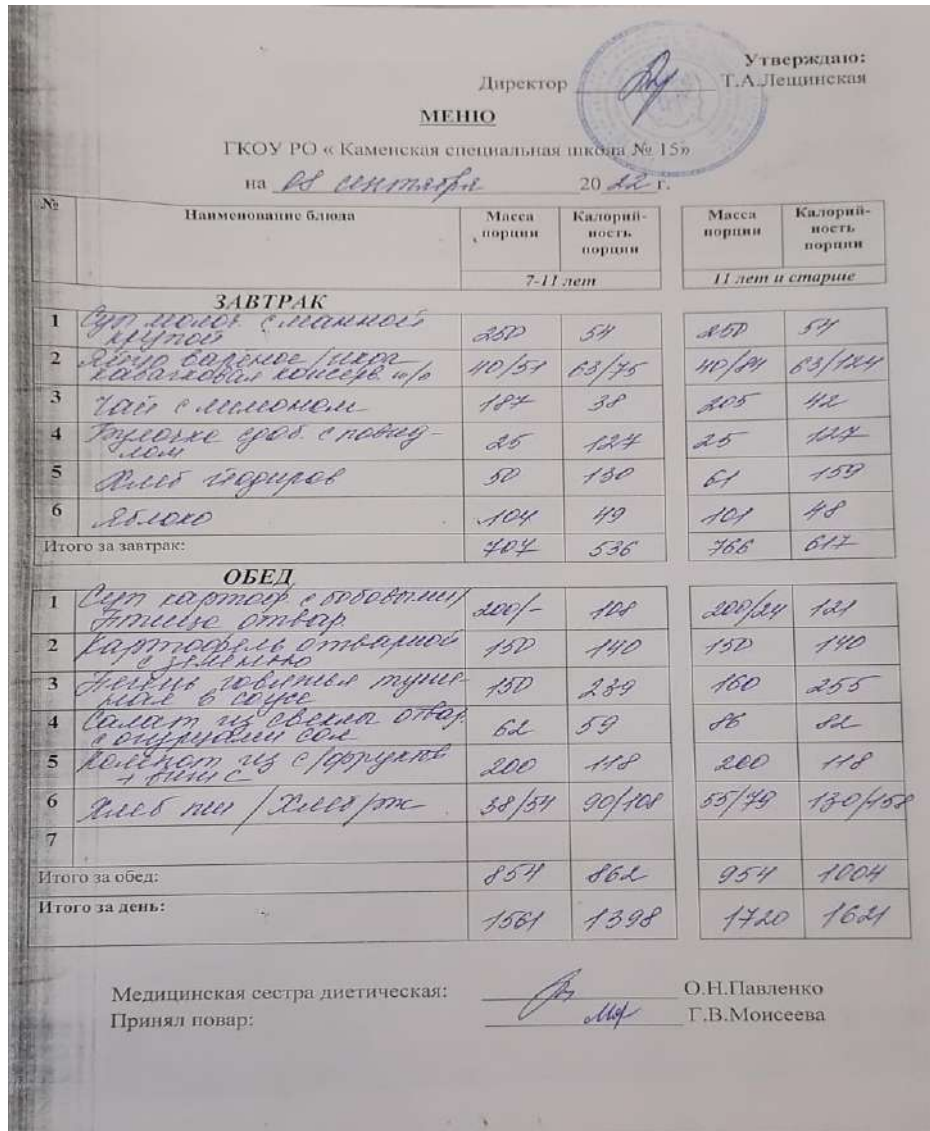 Утверждаю:
Директор Т.А.Лещинская
МЕНЮ
ГКОУ РО « Каменская специальная школа № 15»
на 08 сентября 20 22 г.
№ Наименование блюда Масса порции Калорий-ность порции Масса порции Калорий-ность порции
7-11 лет 11 лет и старше
ЗАВТРАК
1 Суп молоч. с манной
крупой 250 54 250 54
2 Яйцо вареное /икра
кабачковая консерв. 40/51 63/75 40/84 63/124
3 Чай с лимоном 187 38 205 42
4 Булочка сдоб. с повид-
лом 25 127 25 127
5 Хлеб йодиров 50 130 61 159
6 Яблоко 104 49 101 48
Итого за завтрак: 707 536 766 617
ОБЕД
1 Суп картоф. с бобовыми/
Птица отвар 200/- 108 200/24 121
2 Картофель отварной
с зеленью 150 140 150 140
3 Печень говяжья туше-
ная в соусе 150 239 160 255
4 Салат из свеклы отвар.
с огурцами сол 62 59 86 82
5 Компот из с/фруктов
+ вит С 200 118 200 118
6 Хлеб пш / Хлеб рж 38/54 90/108 55/79 130/158
7
Итого за обед: 854 862 954 1004
Итого за день: 1561 1398 1720 1621
Медицинская сестра диетическая: О.Н.Павленко
Принял повар: Г.В.Моисеева